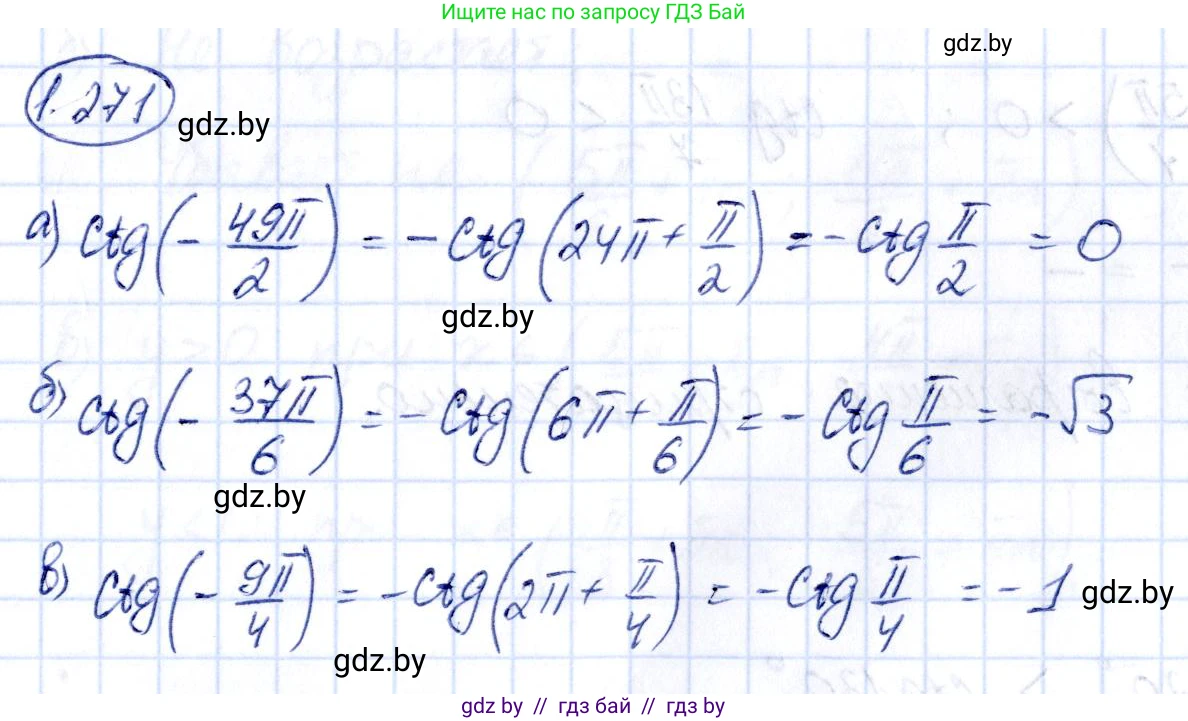 Ищите нас по запросу ГДЗ Бай
gdz.by
1.271
gdz.by
а) ctg(-49π/2) = -ctg(24π+π/2) = -ctg π/2 = 0
gdz.by
б) ctg(-37π/6) = -ctg(6π+π/6) = -ctg π/6 = -√3
gdz.by
в) ctg(-9π/4) = -ctg(2π+π/4) = -ctg π/4 = -1 gdz.by
gdz.by
gdz.by // гдз бай // gdz.by